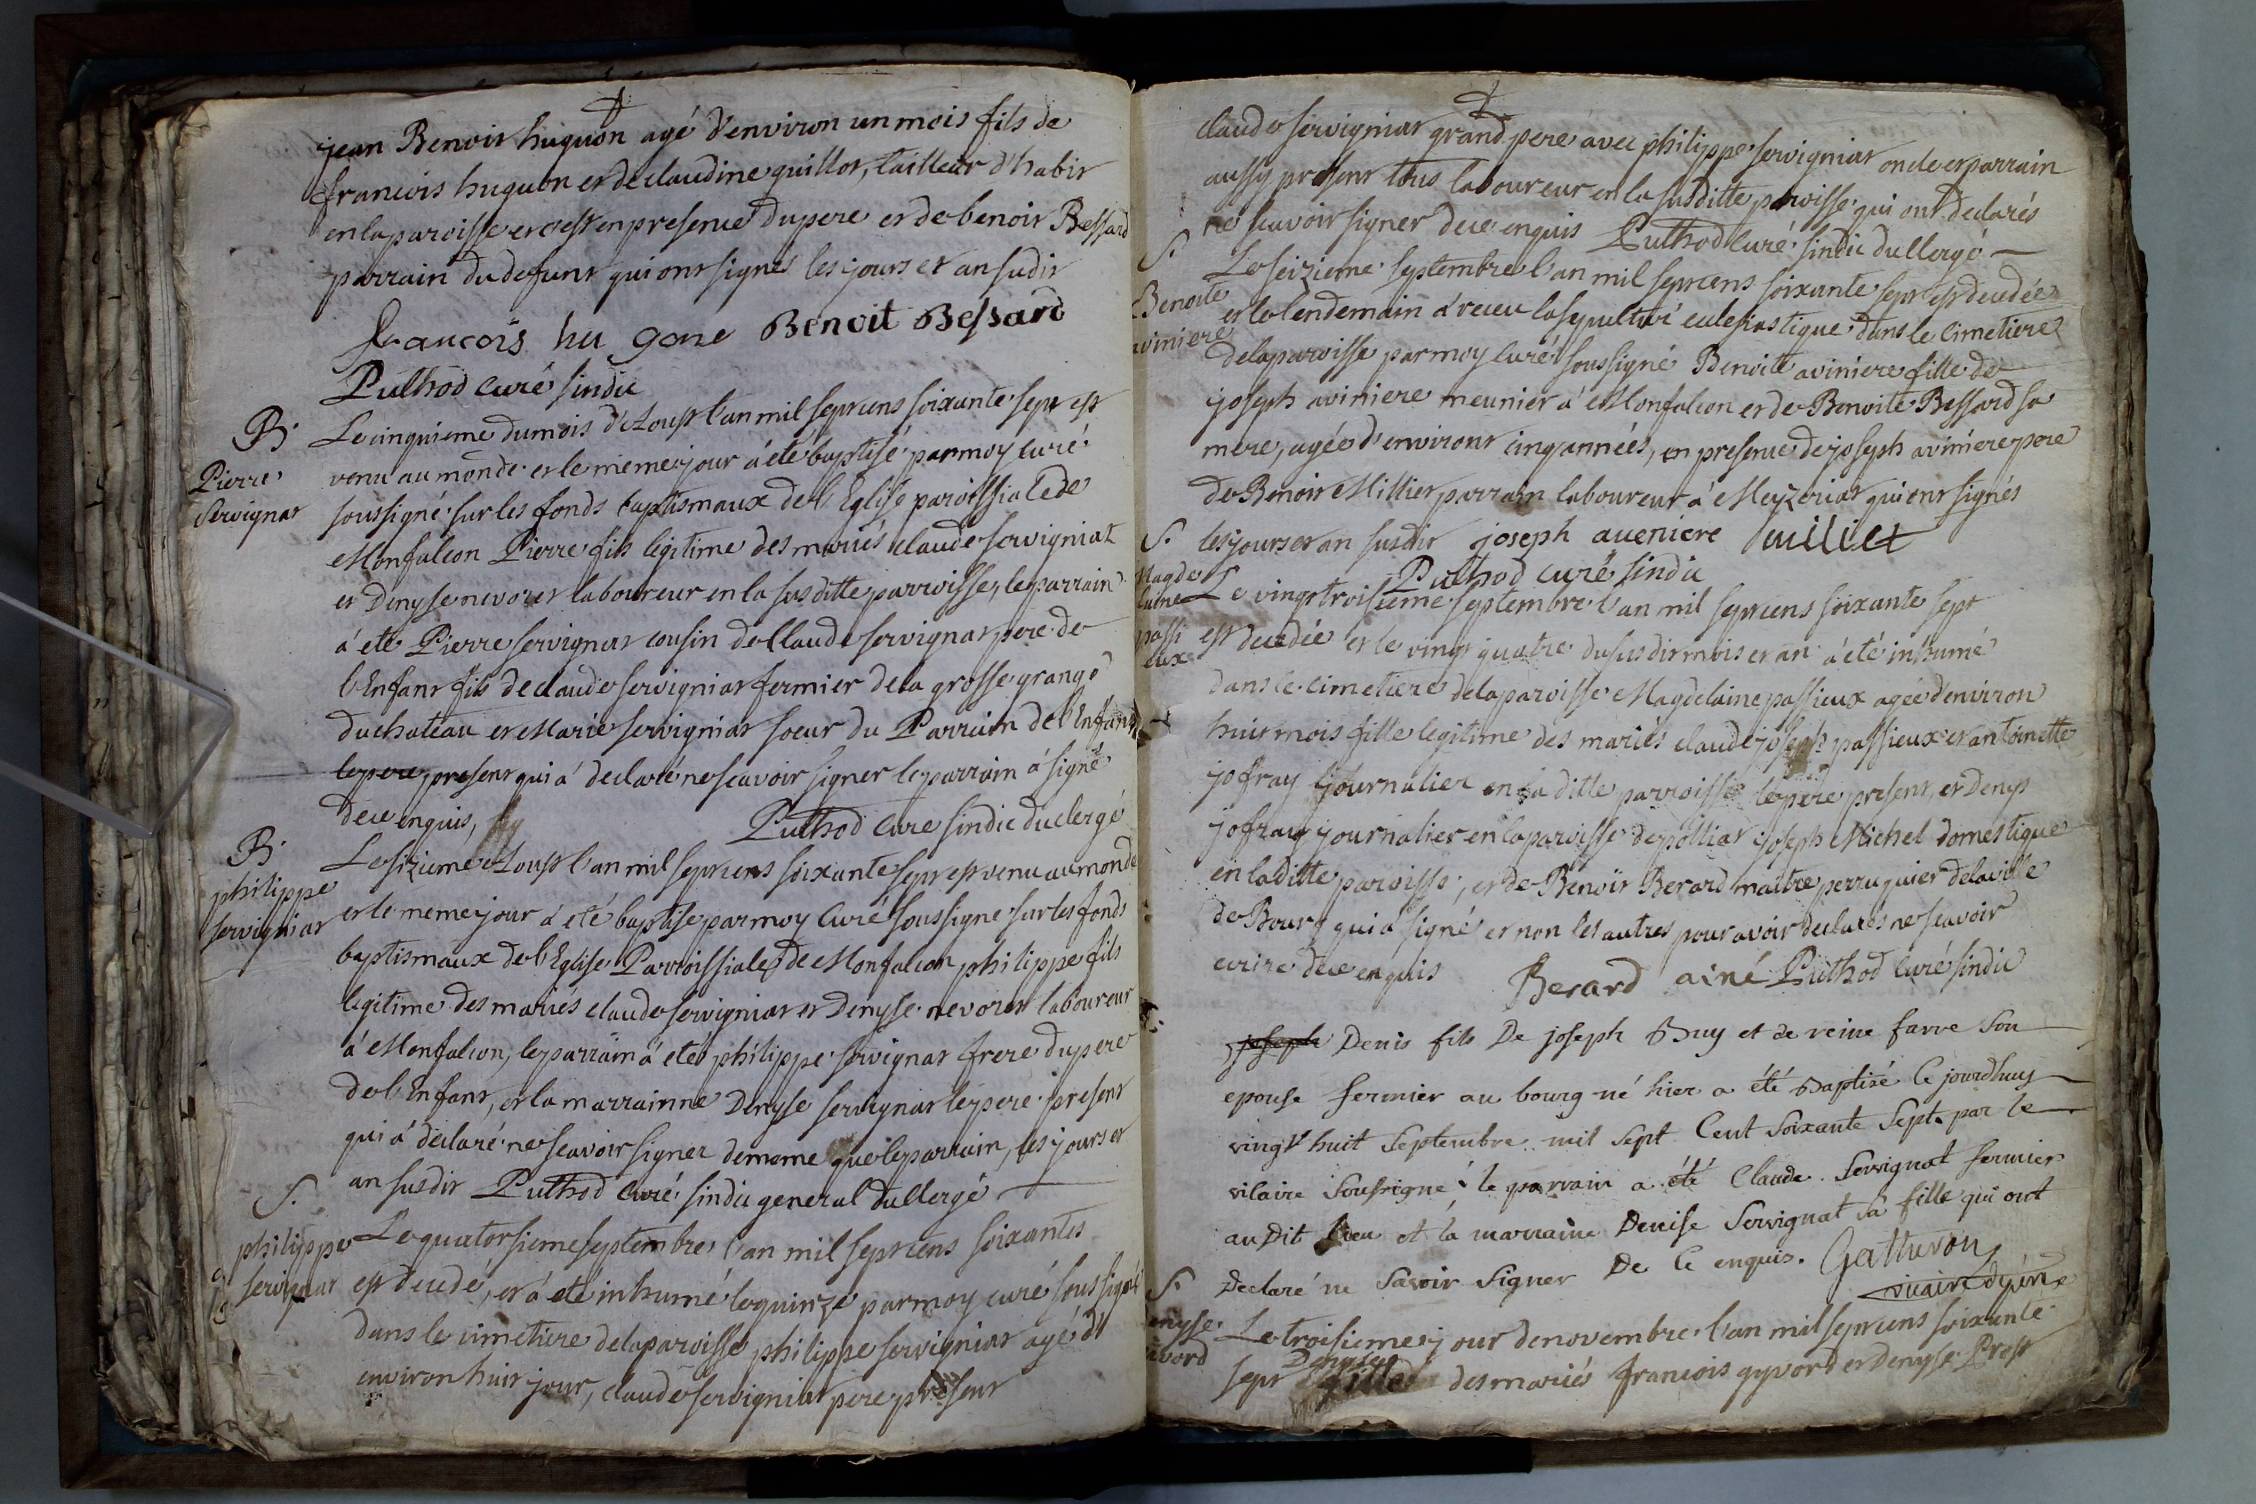 jean Benoit huguon agé d'environ un mois fils de
francois huguon et de claudine guillot, tailleur d'habit
en la paroisse et c'est en presence du pere et de benoit Bessard
parrain du defunt qui ont signés les jours et an sudit
francois hu gone Benoit Bessard
Puthod curé sindic
B.
Pierre
Servignat
Le cinquieme du mois d'Aoust l'an mil sept cens soixante sept est
venu au monde et le meme jour á été baptisé par moy curé
soussigné sur les fonds baptismaux de l'Eglise paroissiale de
Monfalcon Pierre fils legitime des mariés claude servigniat
et Denyse nevoret laboureur en la susditte parroisse, le parrain
á eté Pierre servigniat cousin de Claude servignat pere de
l'Enfant fils de claude servigniat fermier de la grosse grange
du chateau et Marie servigniat soeur du Parrain de l'Enfant,
le pere present qui á declaré ne scavoir signer le parrain á signé
de ce enquis, Puthod Curé sindic du clergé
B.
philippe
servigniat
Le sizieme Aoust l'an mil sept cens soixante sept est venu au monde
et le meme jour á eté baptisé par moy Curé soussigné sur les fonds
baptismaux de l'Eglise Parroissiale de Monfalcon philippe fils
legitime des mariés claude servigniat et Denyse nevoret laboureur
á Monfalcon, le parrain á eté philippe servignat frere du pere
de l'Enfant, et la marrainne Denyse servignat le pere present
qui á declaré ne scavoir signer de meme que le parrain, les jours et
an susdit Puthod Curé sindic general du Clergé
S.
philippe
servignat
Le quatorsieme septembre l'an mil sept cens soixantes
est decedé, et á eté inhumé le quinze par moy curé soussigné
dans le cimetiere de la paroisse philippe servigniat agé d'
environ huit jour, claude servigniat pere present
claude servigniat grand pere avec philippe servigniat oncle et parrain
aussy present tous laboureur en la susditte paroisse qui ont declarés
ne scavoir signer de ce enquis Puthod Curé sindic du Clergé
S.
Benoite
aviniere
Le seizieme septembre l'an mil sept cens soixante sept est decedée
et le lendemain á receu la sepulture eclesiastique dans le Cimetiere
de la paroisse par moy Curé soussigné Benoite aviniere fille de
joseph aviniere meunier á Monfalcon et de Benoite Bessard sa
mere, agée d'environt cinq années, en presence de joseph aviniere pere
de Benoit Millier parrain laboureur á Meyzeriat qui ont signés
les jours et an susdit joseph aveniere millet
Puthod curé sindic
S.
Magde
laine
passi
eux
Le vingt troisieme septembre l'an mil sept cens soixante sept
est decedée et le vingt quatre du susdit mois et an á été inhumé
dans le cimetiere de la paroisse Magdelaine passieux agée d'environ
huit mois fille legitime des mariés claude joseph passieux et antoinette
jofray journalier en la ditte parroisse le pere present, et Denys
jofray journalier en la paroisse de polliat joseph Michel domestique
en la ditte paroisse, et de Benoit Berard maitre perruquier de la ville
de Bourg qui á signé et non les autres pour avoir declarés ne scavoir
ecrire de ce enquis Berard ainé Puthod Curé sindic
joseph Denis fils De joseph Buy et de reine farve son
epouse fermier au bourg né hier a été Baptisé Ce jourdhuy
vingt huit Septembre mil Sept Cent Soixante Sept par le
vicaire Soussigné, le parrain a été Claude Servignat fermier
au Dit Lieu et la marraine Denise Servignat Sa fille qui ont
Declaré ne Savoir Signer De Ce enquis. Gatheron
vicaire
S.
Le troisieme jour de novembre l'an mil sept cens soixante
sept Denyse fille des mariés francois gyvord et Denyse Prost